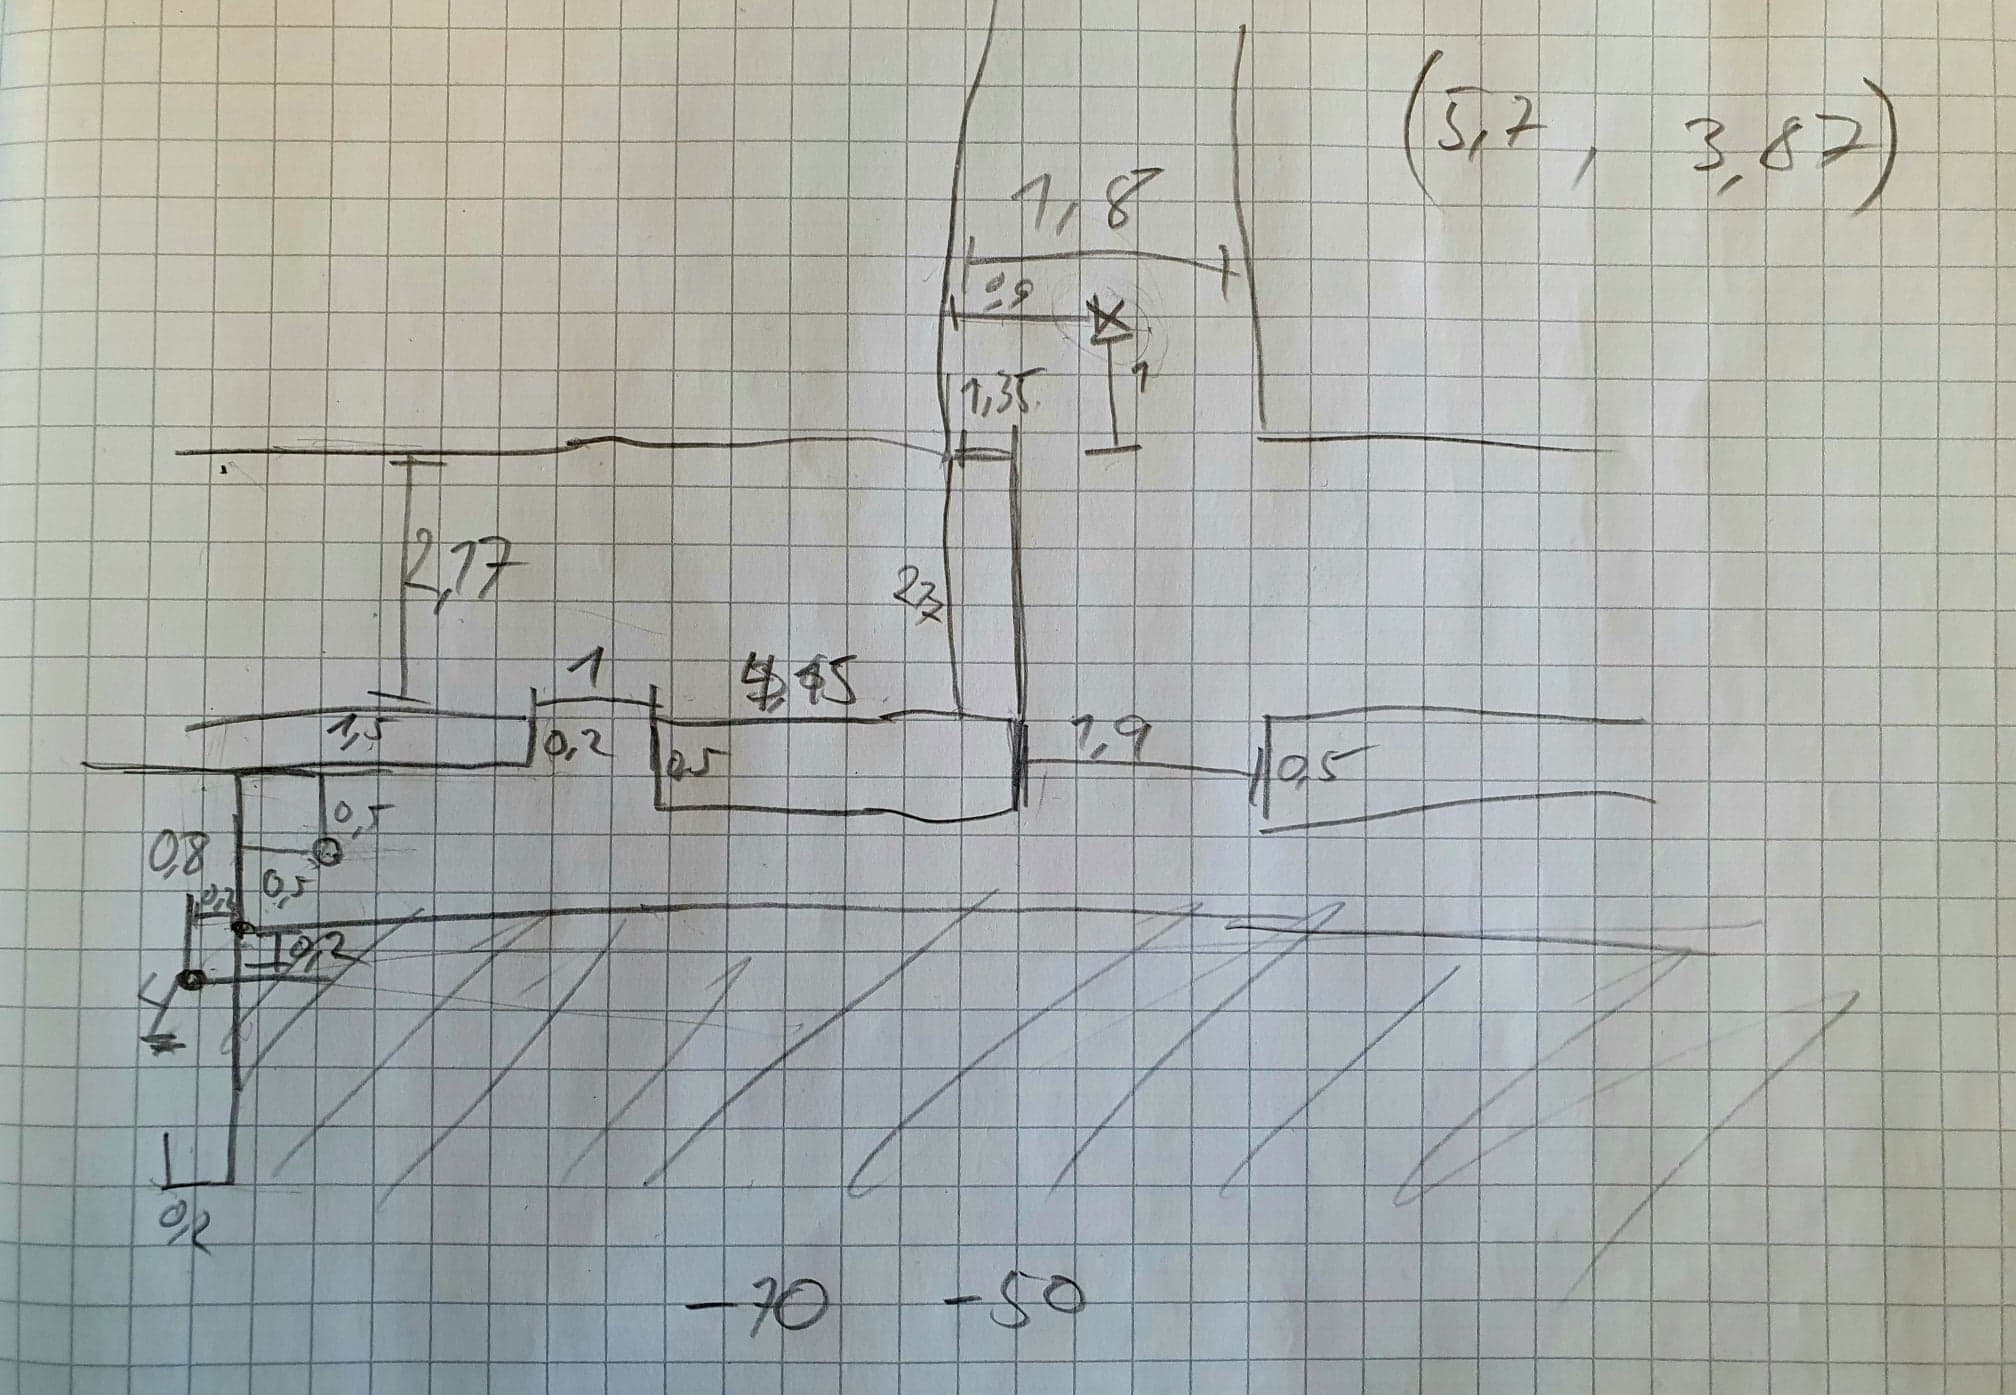 (5,7 , 3,87)
1,8
0,9
1
1,35
2,17
1
1,5
0,2
0,5
1,9
0,5
0,5
0,8
0,5
0,2
0,2
0,2
-70 -50